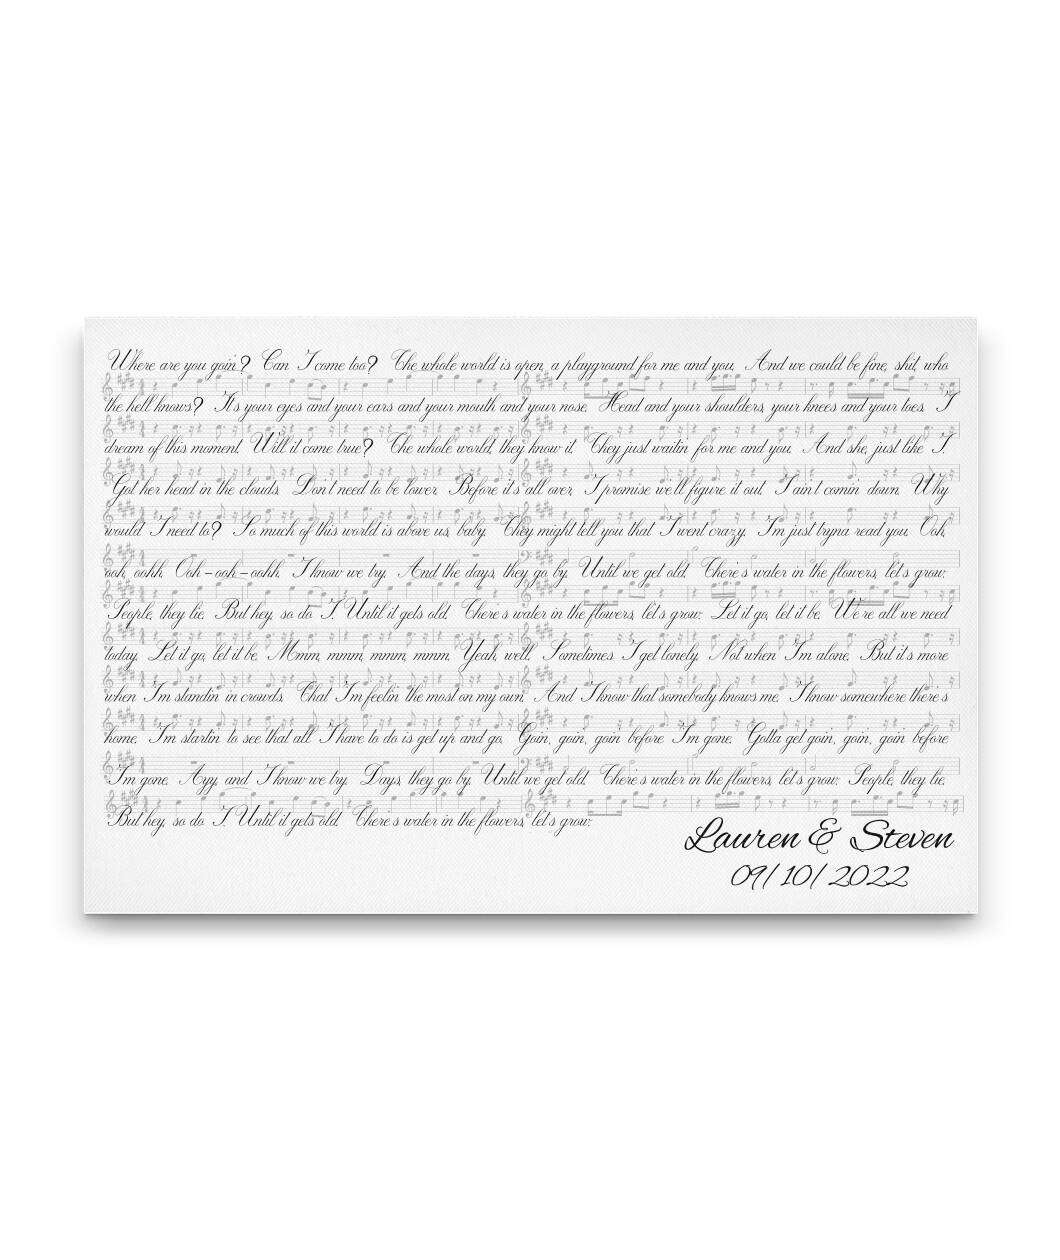 Where are you goin'? Can I come too? The whole world is open, a playground for me and you. And we could be fine, shit, who
the hell knows? It's your eyes and your ears and your mouth and your nose. Head and your shoulders, your knees and your toes. I
dream of this moment. Will it come true? The whole world, they know it. They just waitin' for me and you. And she, just like I.
Got her head in the clouds. Don't need to be lower. Before it's all over, I promise we'll figure it out. I ain't comin' down. Why
would I need to? So much of this world is above us, baby. They might tell you that I went crazy. I'm just tryna read you. Ooh,
ooh, oohh. Ooh-ooh-oohh. I know we try. And the days, they go by. Until we get old. There's water in the flowers, let's grow.
People, they lie. But hey, so do I. Until it gets old. There's water in the flowers, let's grow. Let it go, let it be. We're all we need
today. Let it go, let it be. Mmm, mmm, mmm, mmm. Yeah, well. Sometimes I get lonely. Not when I'm alone. But it's more
when I'm standin' in crowds. That I'm feelin' the most on my own. And I know that somebody knows me. I know somewhere there's
home. I'm startin' to see that all I have to do is get up and go. Goin', goin', goin' before I'm gone. Gotta get goin', goin', goin' before
I'm gone. Ayy, and I know we try. Days, they go by. Until we get old. There's water in the flowers, let's grow. People, they lie.
But hey, so do I. Until it gets old. There's water in the flowers, let's grow.
Lauren & Steven
09/10/2022